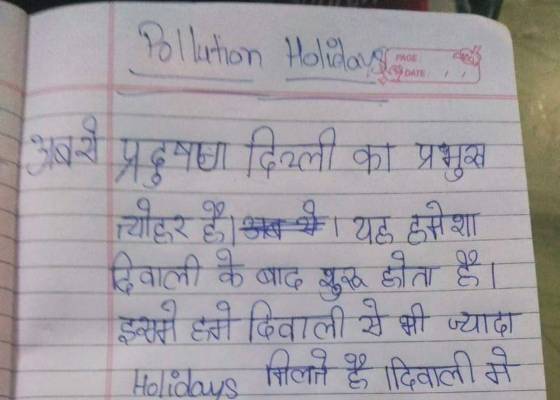 Pollution Holidays
PAGE
DATE
अबसे प्रदुषण दिल्ली का प्रमुख
त्योहर है। अब से। यह हमेशा
दिवाली के बाद शुरू होता है।
इसमे हमे दिवाली से भी ज्यादा
Holidays मिलते है। दिवाली मे